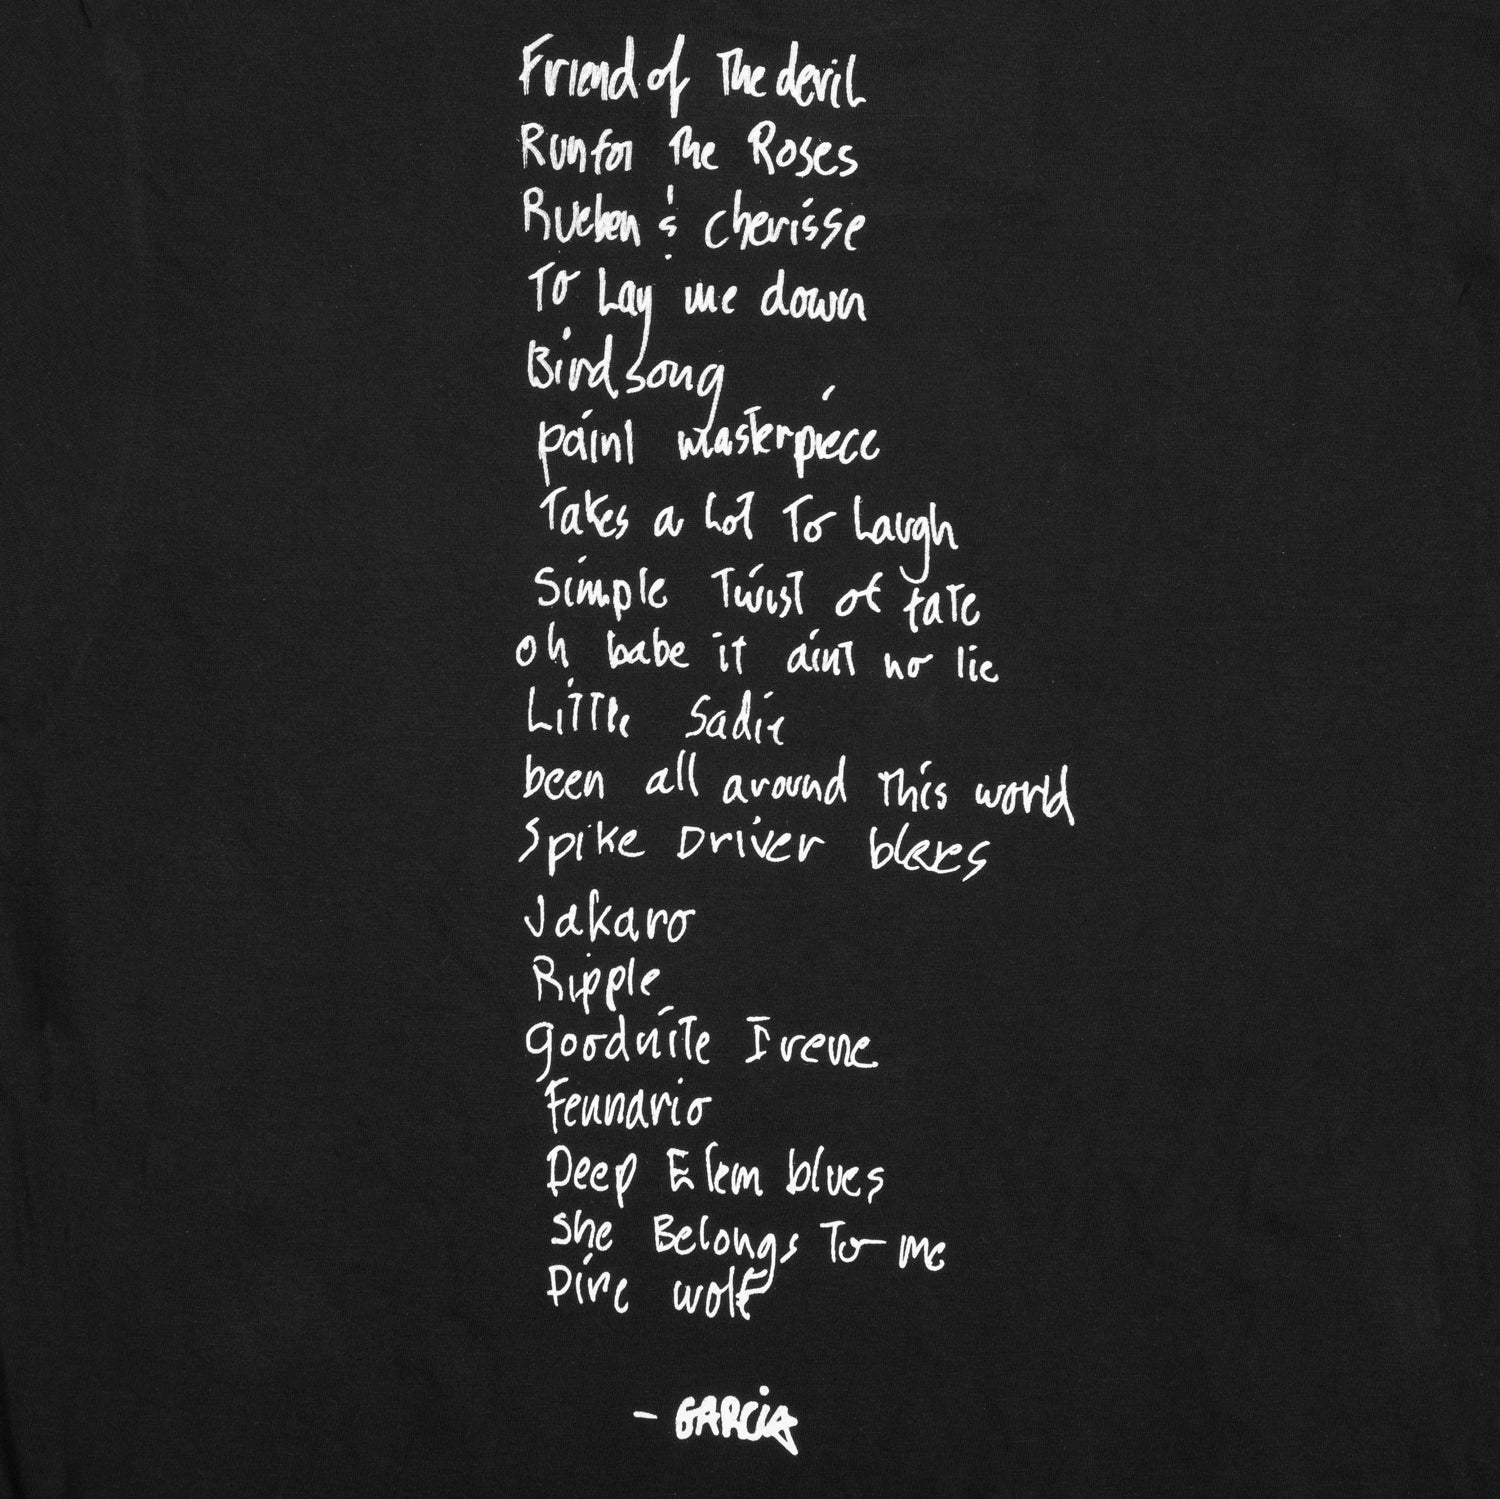 Friend of The devil
Run for The Roses
Rueben & cherisse
To Lay me down
Bird song
paint masterpiece
Takes a Lot To Laugh
Simple Twist of fate
oh babe it aint no lie
Little Sadie
been all around This world
Spike Driver blues
Jakaro
Ripple
goodnite Irene
Fennario
Deep Elem blues
She Belongs To me
Dire wolf
- GARCIA